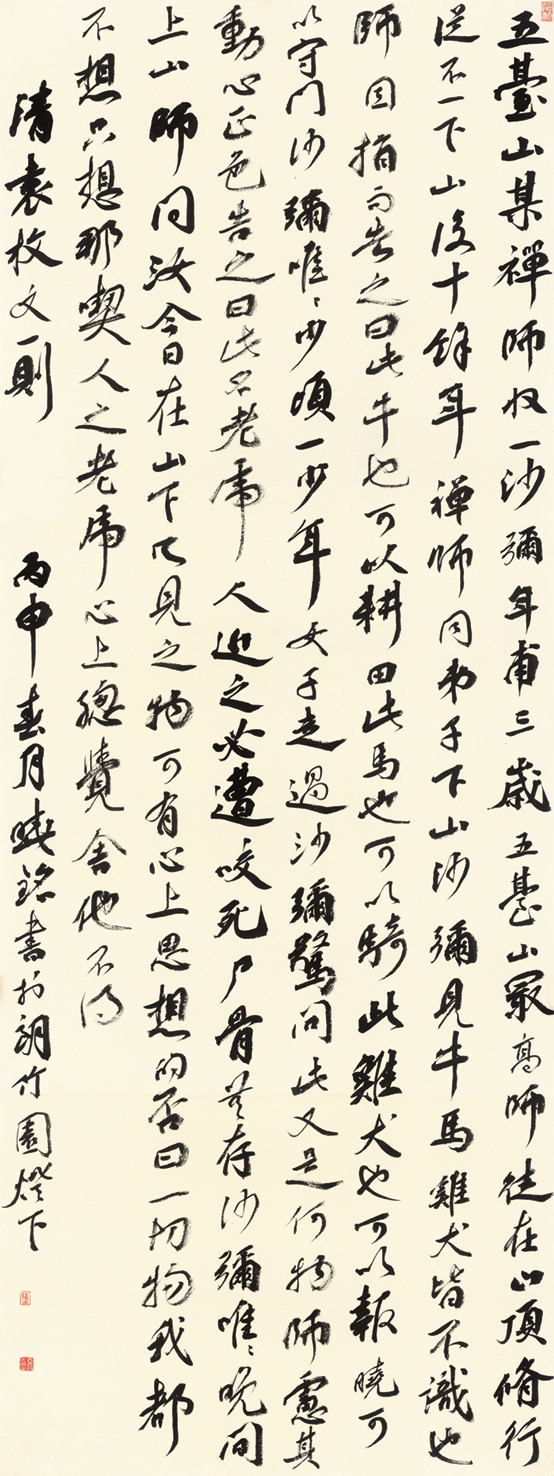 五臺山某禪師收一沙彌年甫三歲五臺山最高師徒在山頂脩行
從不一下山後十餘年禪師同弟子下山沙彌見牛馬雞犬皆不識也
師因指而告之曰此牛也可以耕田此馬也可以騎此雞犬也可以報曉可
以守門沙彌唯〻少頃一少年女子走過沙彌驚問此又是何物師慮其
動心正色告之曰此名老虎人近之必遭咬死尸骨無存沙彌唯〻晚間
上山師問汝今日在山下所見之物可有心上思想的否曰一切物我都
不想只想那喫人之老虎心上總覺舍他不得
清袁枚文一則
丙申春月曉銘書於朗竹園燈下